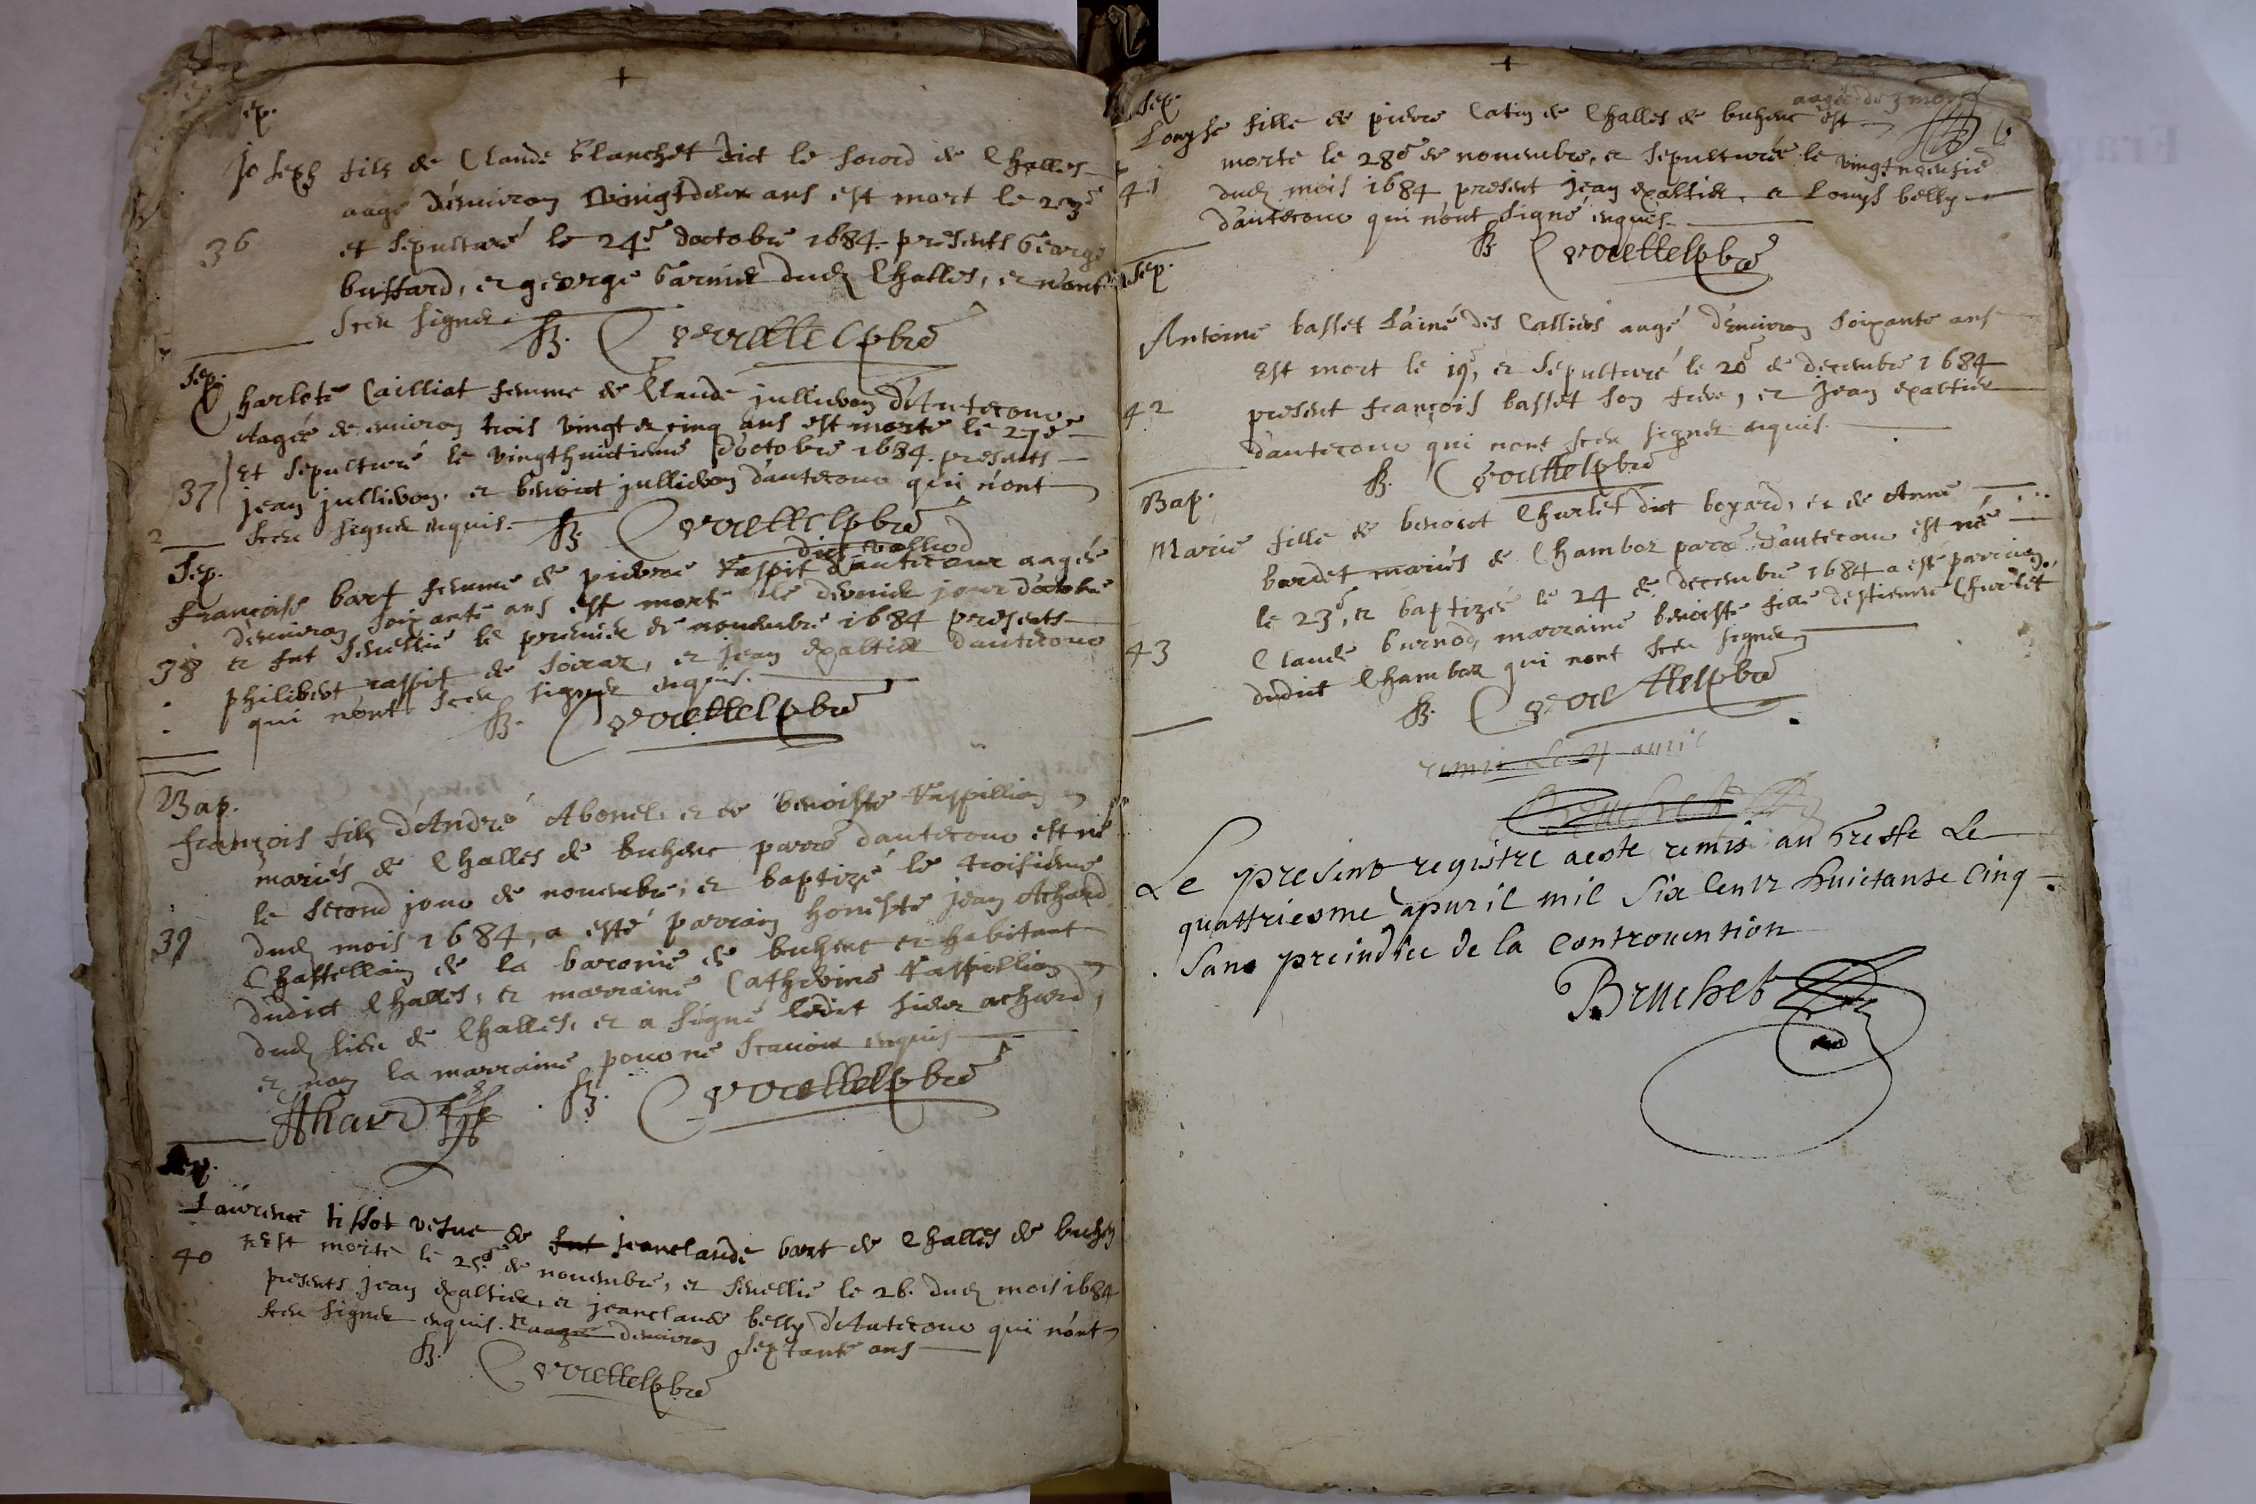 +
Sep.
Joseph fils de Claude blanchet dict le sourd de Challes
aagé d'environ vingt deux ans est mort le 23e
36
et sépulturé le 24e doctobre 1684. présents George
buffard, et george Garnier dud Challes, et n'ont
sceu signer.
Sep.
Charlote Cailliat femme de Claude jullievon d'Autecour
Aagée de environ trois vingt et cinq ans est morte le 27e
Et sepulturé le vingthuictieme d'octobre 1684. présents
37
jean jullievon, et benoict jullievon d'autecour qui n'ont
sceu signer enquis.
Sep.
dict
françoise bart femme de pierre raspit d'autecour aagée
d'environ soixante ans est morte le dernier jour d'octobre
38
et fut sevellie le premier de novembre 1684 présents
philibert raspit de soiraz, et jean expaltier d'autecour
qui n'ont sceu signer enquis.
Bap.
françois fils d'André Abonel, et de benoiste raspillion
mariés de Challes de buhenc parre d'autecour est né
le second jour de novembre, et baptizé le troisieme
39
dud mois 1684, a esté parrain honeste jean Achard
Chastellain de la baronie de buhenc et habitant
dudict Challes, et marraine Catherine raspillion
dud lieu de Challes, et a signé ledit sieur achard,
et non la marraine pour ne scavoir enquis
Achard
Sep.
Laurence tissot vefue de fut jeanclaude bart de Challes de buhen
40
Est morte le 25e de novembre, et sevellie le 26. dud mois 1684
présents jean expaltier, et jeanclaude belly d'Autecour qui n'ont
sceu signer enquis. et aagée d'environ septante ans
+
Sep.
aagée de 3 mois
Louyse fille de pierre Catin de Challes de buhenc est
morte le 28e de novembre, et sepulturée le vingtneufie
41
dud mois 1684 présent jean expaltier, et Louys belly
d'autecour qui n'ont signé enquis.
Sep.
Antoine basset L'ainé des Calliers aagé d'environ soixante ans
Est mort le 19, et sépulturé le 20e de decembre 1684
42
présent françois basset son frere, et jean expaltier
d'autecour qui n'ont sceu signer enquis.
Bap.
Marie fille de benoict Churlet dict boyard, et de Anne
bardet mariés de Chamboz parre d'autecour est née
le 23e, et baptizée le 24 de decembre 1684 a esté parrain
43
Claude burnod, marraine benoiste fille d'estienne Churlet
dudict Chamboz qui n'ont sceu signer
remis le 4 auril
Bruchet
Le présent registre aesté remis au Greffe Le
quattriesme apuril mil six centz huictante cinq
sans preiudice de la controuention
Bruchet